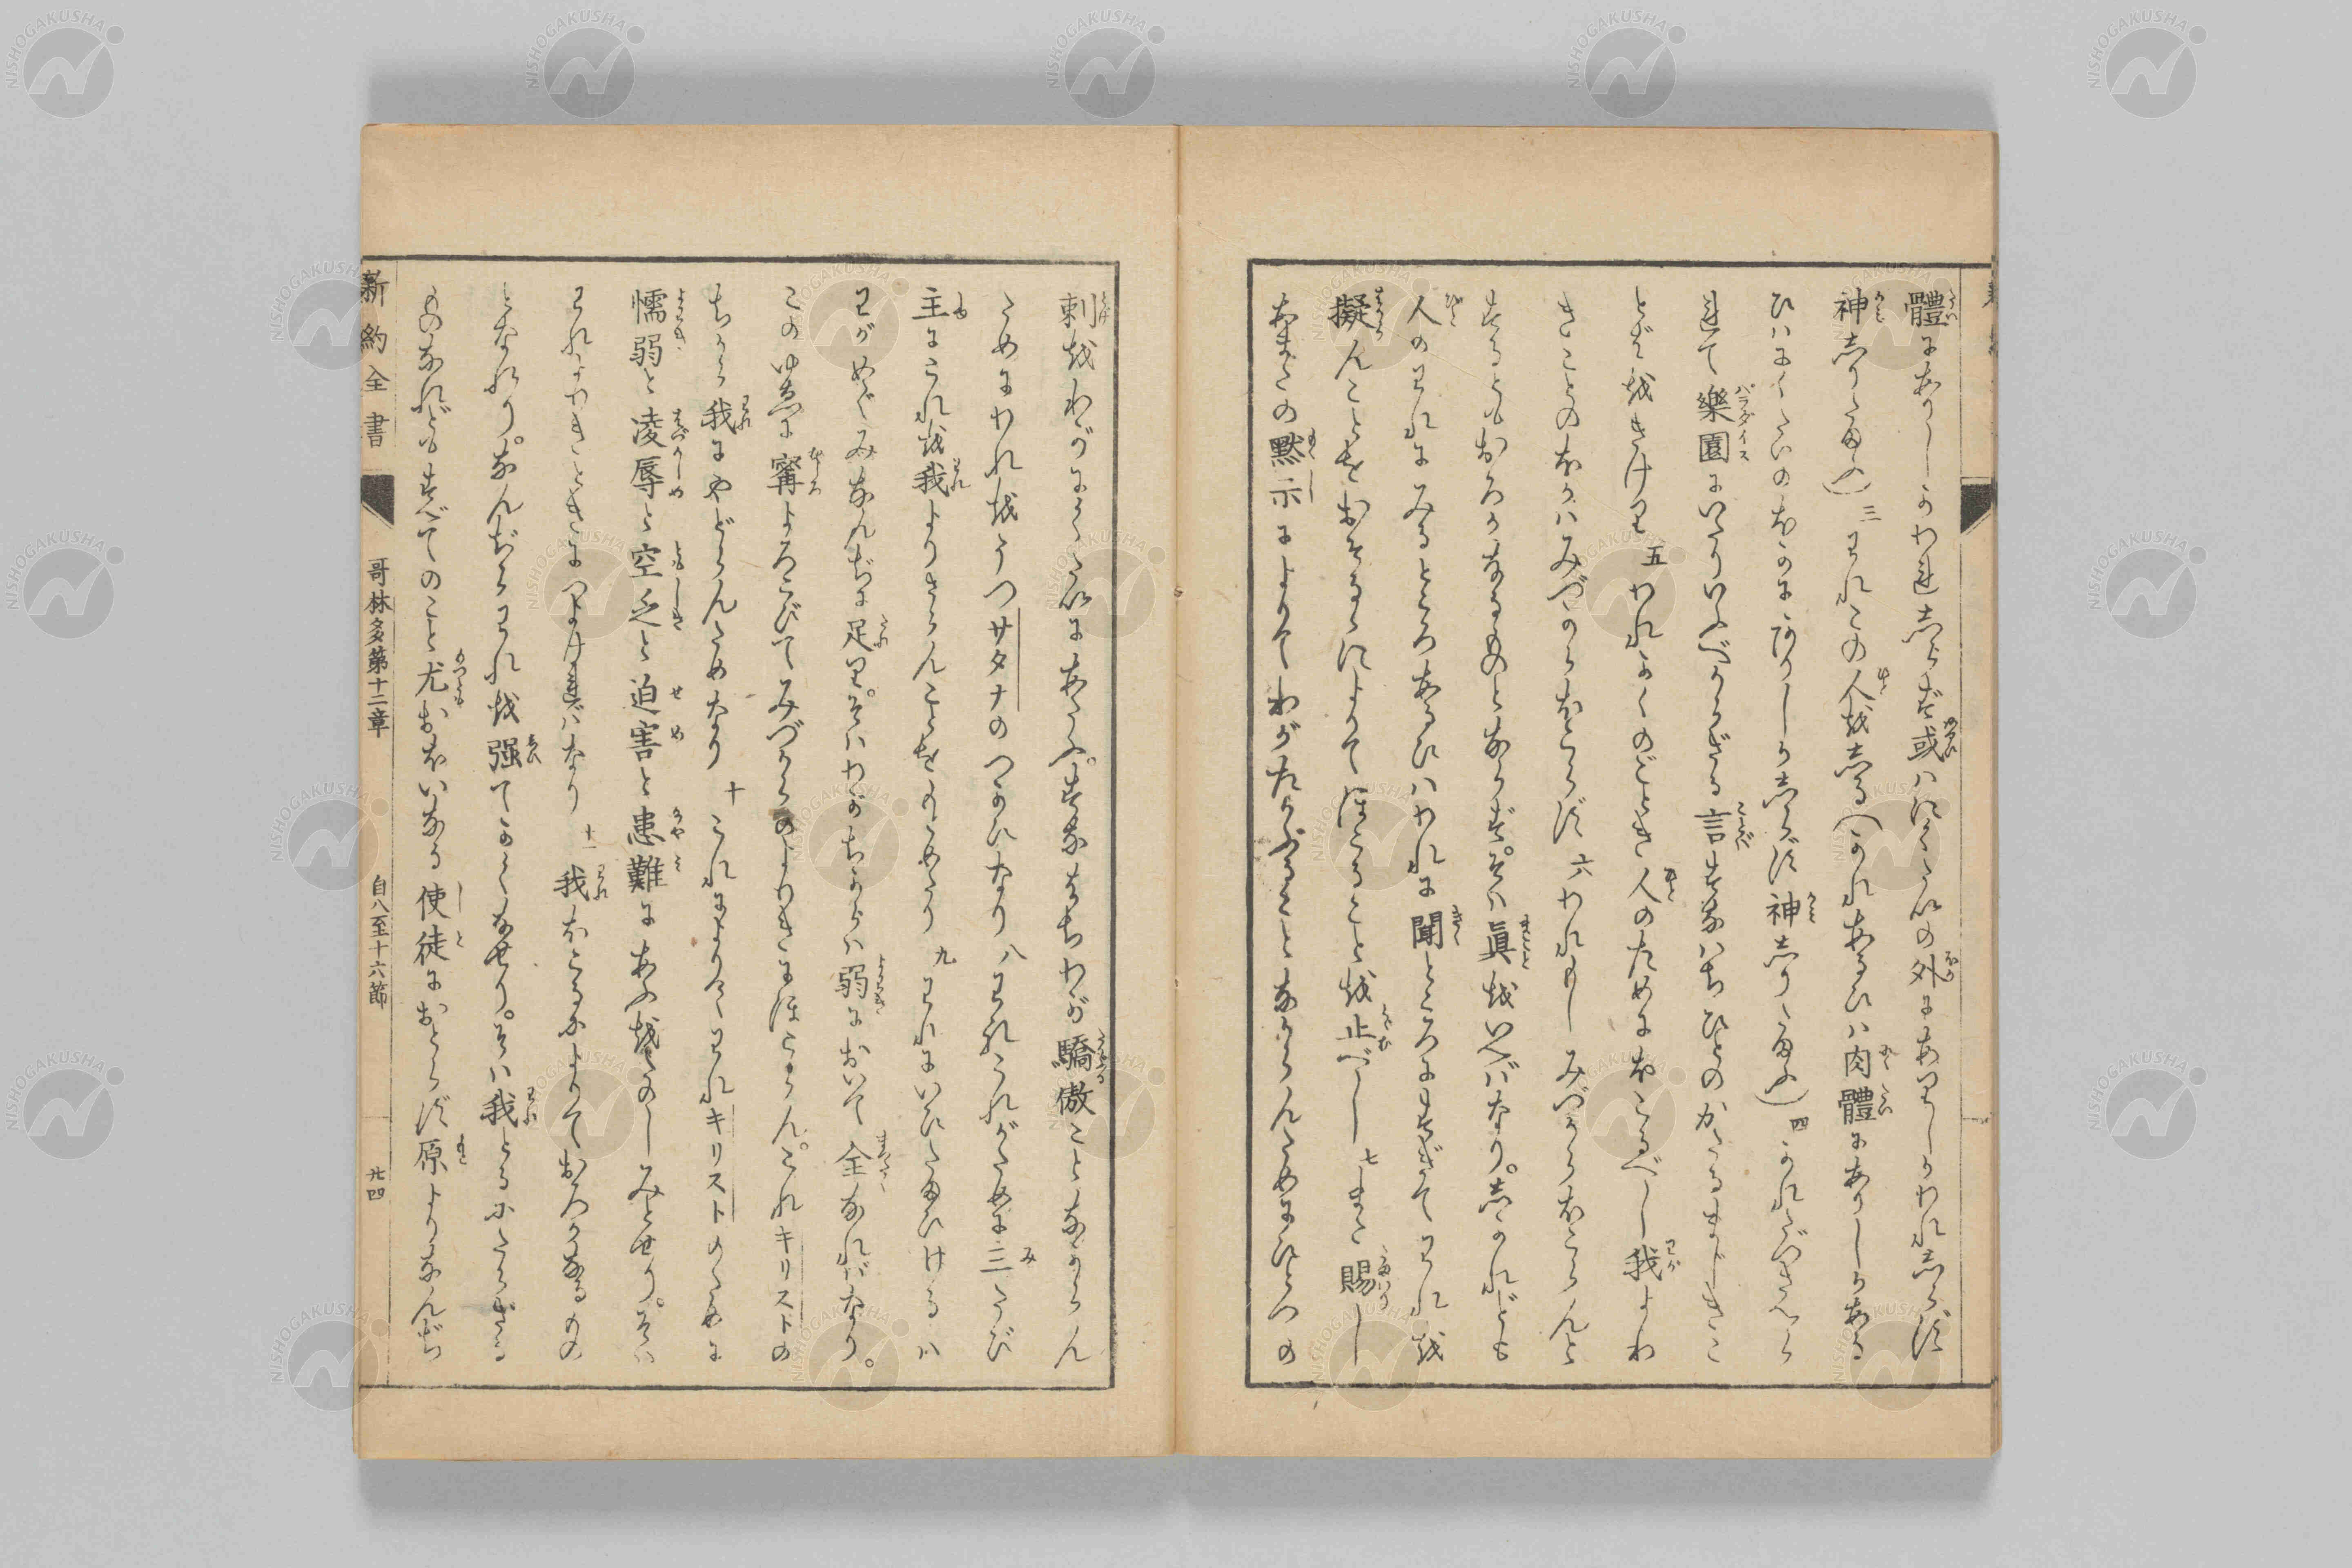 體にありしかわれしらず或はにくたいの外にありしかわれしらず
神しりたまふ)三われこの人をしる(かれあるひは肉體にありしかある
ひはにくたいのほかにありしかしらず神しりたまふ)四かれたづさへら
れて樂園にいたりいふべからざる言すなはちひとのかたるまじきこ
とばをきけり五われかくのごとき人のためにほこるべし我よわ
きことのほかはみづからほこらず六われもしみづからほこらんと
するともおろかなるものとならずそは眞をいへばなり。しかれども
人のわれにみるところあるひはわれに聞ところにすぎてわれを
擬んことをおそるるによりてほこることを止べし七また賜し
おほくの黙示によりてわがたかぶることなからんためにひとつの
刺をわがにくたいにあたふ。すなはちわが驕傲ことなからん
ためにわれをうつサタナのつかひなり八われこれがために三たび
主にこれを我よりさらんことをもとめたり九われにいひたまひけるは
わがめぐみなんぢに足り。そはわがちからは弱において全なればなり。
このゆゑに寗よろこびてみづからのよわきにほこらん。これキリストの
ちから我にやどらんためなり十これによりてわれキリストのために
懦弱と凌辱と空乏と迫害と患難にあふをたのしみとせり。そは
われよわきときにつよければなり十一我ほこるによりておろかなるもの
となれり。なんぢらわれを强てかくなせり。そは我とるにたらざる
ものなれどもすべてのこと尤おほいなる使徒におとらず原よりなんぢ
新約全書
哥林多第十二章
自八至十六節
廿四
NISHOGAKUSHA